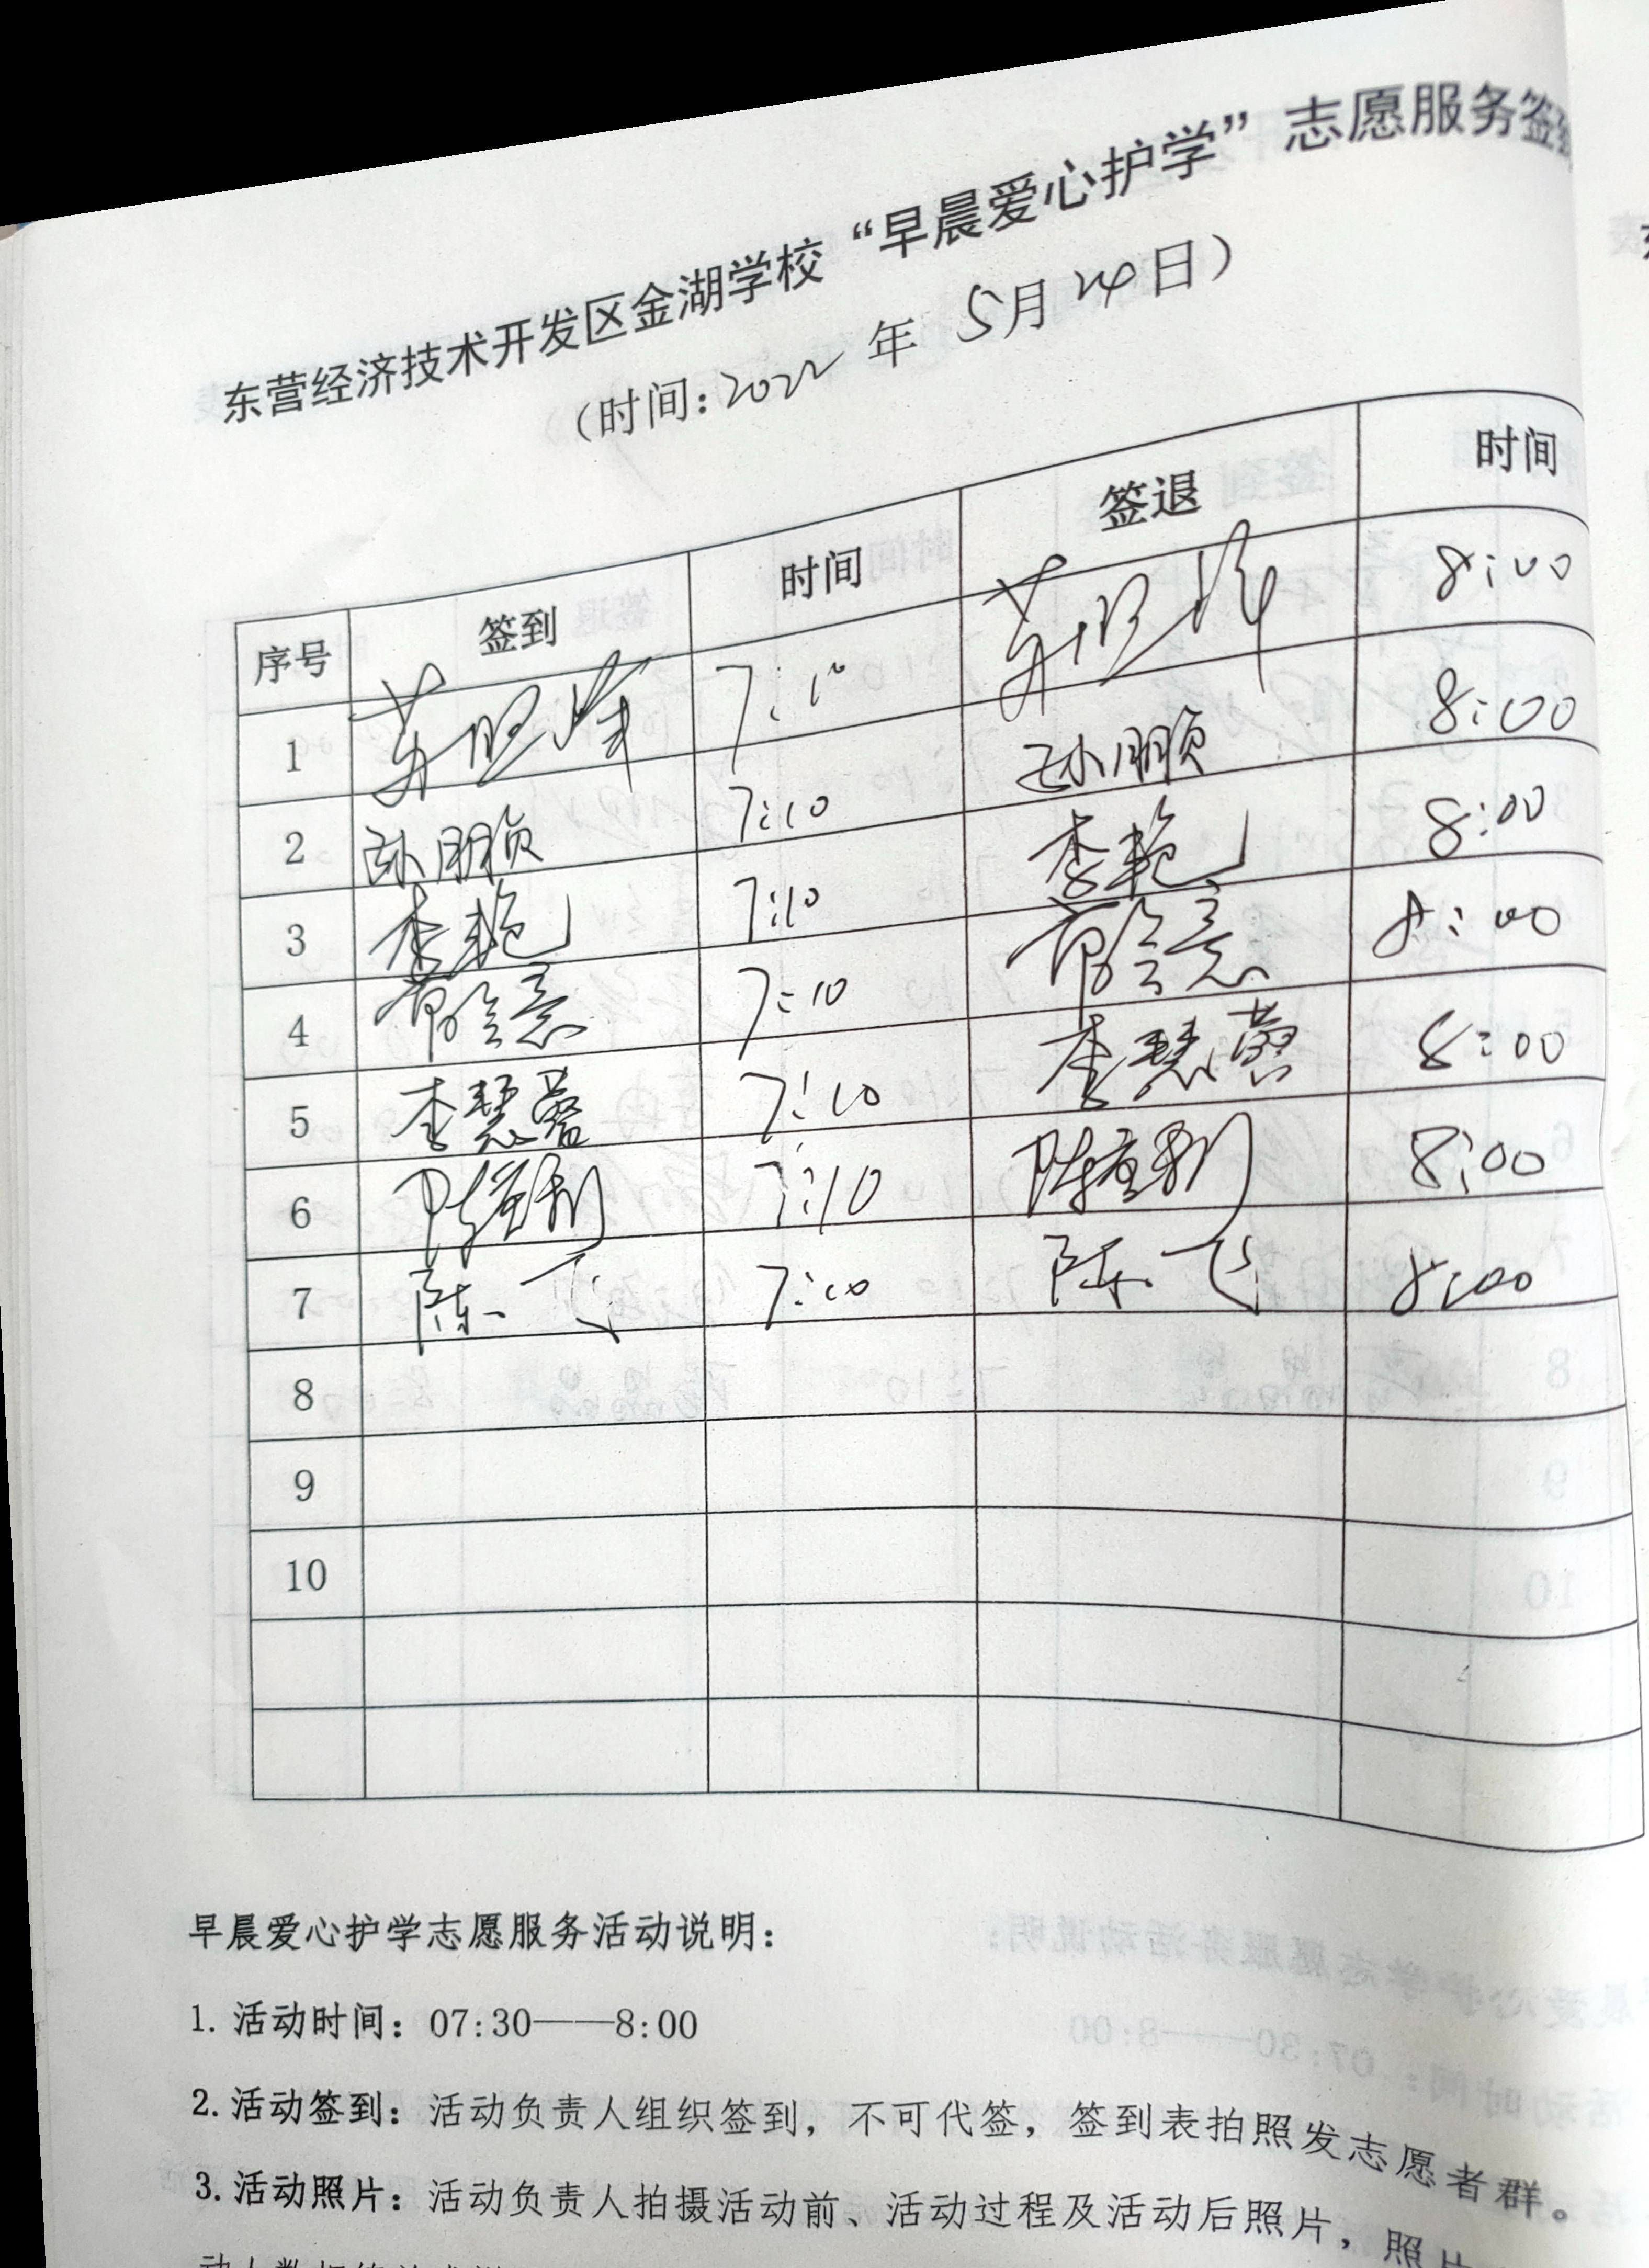 东营经济技术开发区金湖学校“早晨爱心护学”志愿服务签
（时间：2022年 5月24日）
序号 签到 时间 签退 时间
1 7:10 8:00
2 孙鹏 7:10 孙鹏 8:00
3 李艳 7:10 李艳 8:00
4 7:10 8:00
5 李慧 7:10 李慧 8:00
6 陈 利 7:10 陈 利 8:00
7 陈飞 7:10 陈飞 8:00
8
9
10
早晨爱心护学志愿服务活动说明：
1. 活动时间：07:30——8:00
2. 活动签到：活动负责人组织签到，不可代签，签到表拍照发志愿者群。
3. 活动照片：活动负责人拍摄活动前、活动过程及活动后照片，照片